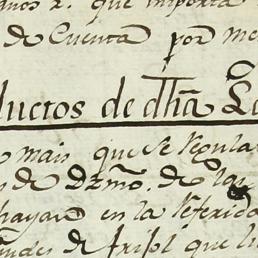 que importa
de Cuenta por me
ductos de dh̃a
mas que se regula
de Dzmo. de la
hayan en la referida
de frisol que